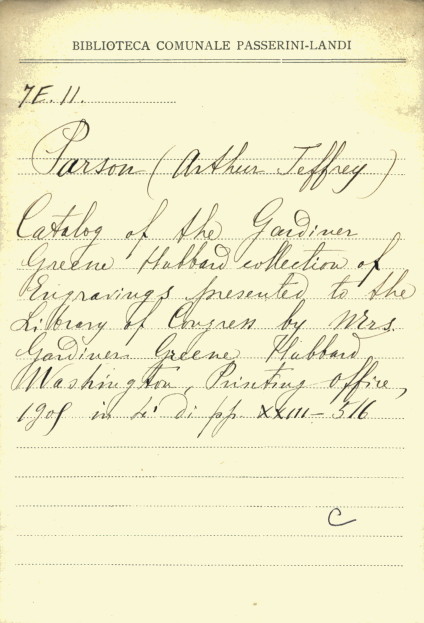 BIBLIOTECA COMUNALE PASSERINI-LANDI
7E. 11.
Parson (Arthur Jeffrey)
Catalog of the Gardiner
Greene Hubbard collection of
Engravings presented to the
Library of Congress by Mrs.
Gardiner Greene Hubbard
Washington, Printing Office,
1905 in 4° di pp. XXIII-516
C